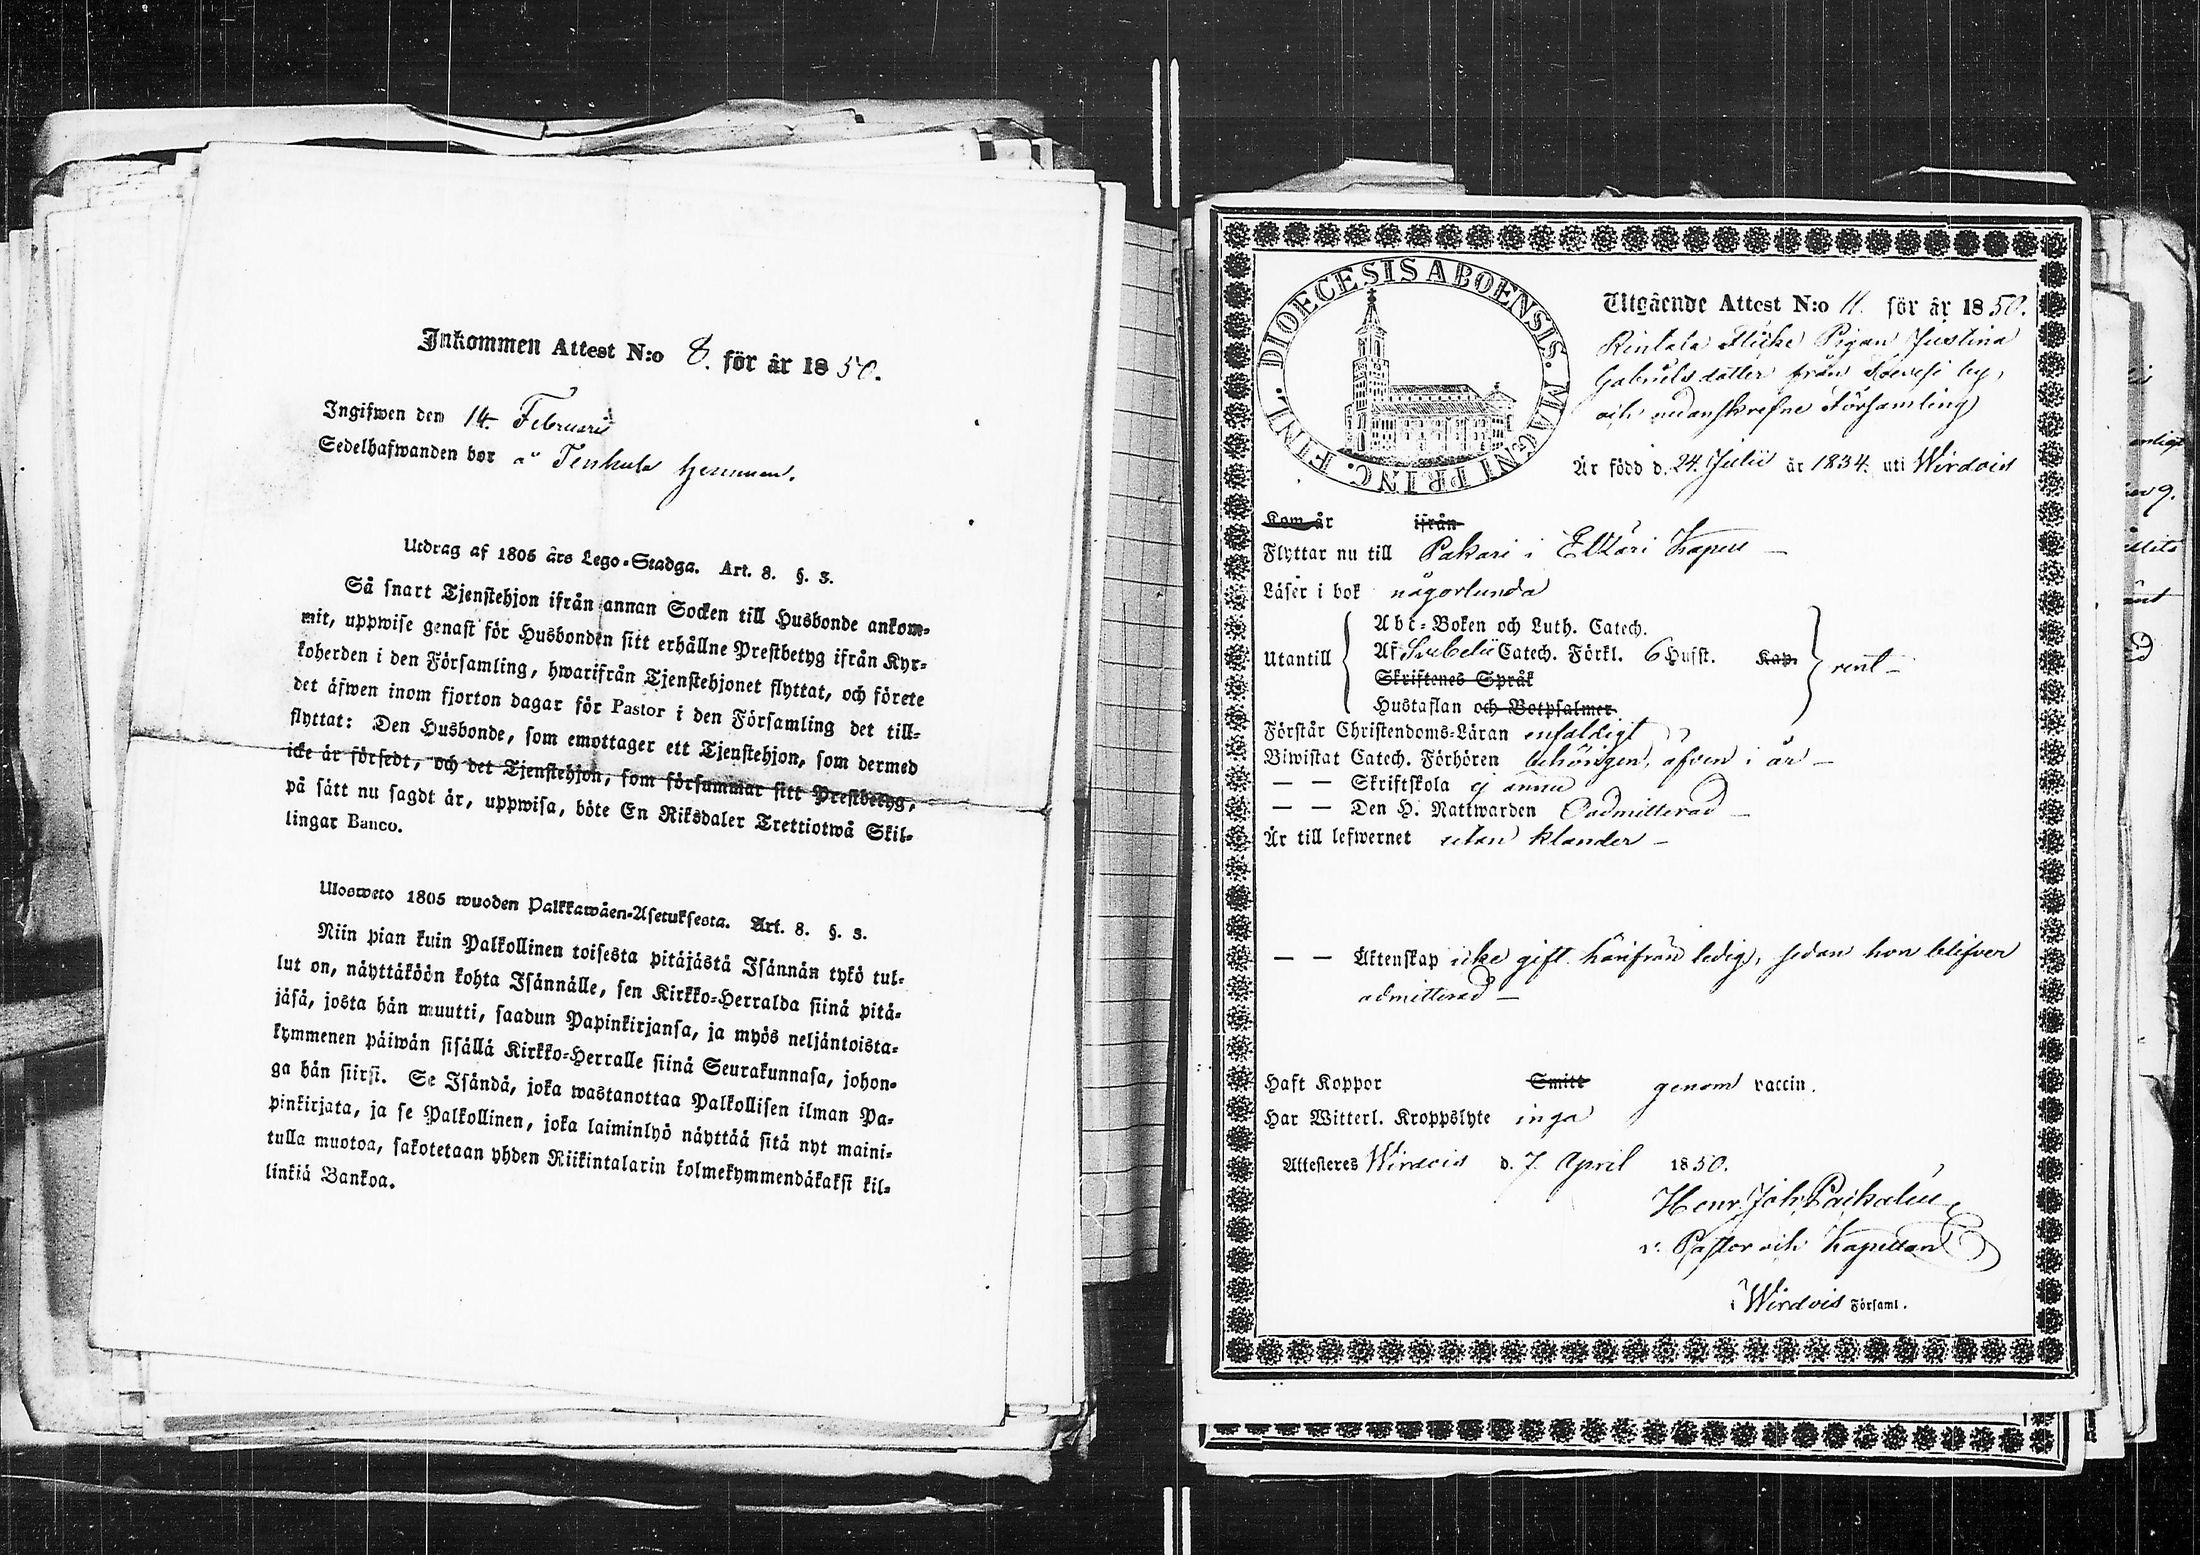 Inkommen Attest N:o 8. för år 1850.
Ingifwen den 14 Februarii
Sedelhafwanden bor å Tenhula hemman.
Utdrag af 1805 års Lego-Stadga. Art. 8. §. 3.
Så snart Tjenstehjon ifrån annan Socken till Husbonde ankom-
mit, uppwise genast för Husbonden sitt erhållne Prestbetyg ifrån Kyr-
koherden i den Församling, hwarifrån Tjenstehjonet flyttat, och förete
det äfwen inom fjorton dagar för Pastor i den Församling det till-
flyttat: Den Husbonde, som emottager ett Tjenstehjon, som dermed
icke är försedt, och det Tjenstehjon, som försummar sitt Prestbetyg,
på sätt nu sagdt är, uppwisa, böte En Riksdaler Trettiotwå Skil-
lingar Banco.
Ulosweto 1805 wuoden Palkkawäen-Asetuksesta. Art. 8. §. 3.
Niin pian kuin Palkollinen toisesta pitäjästä Isännän tykö tul-
lut on, näyttäköön kohta Isännälle, sen Kirkko-Herralda siinä pitä-
jäsä, josta hän muutti, saadun Papinkirjansa, ja myös neljäntoista-
kymmenen päiwän sisällä Kirkko-Herralle siinä Seurakunnasa, johon-
ga hän siirsi. Se Isändä, joka wastanottaa Palkollisen ilman Pa-
pinkirjata, ja se Palkollinen, joka laiminlyö näyttää sitä nyt maini-
tulla muotoa, sakotetaan yhden Riikintalarin kolmekymmendäkaksi kil-
linkiä Bankoa.
FINL. DIOECESIS ABOENSIS. MAGNI PRINC.
Utgående Attest N:o 11. för år 1850.
Rintala Pigan Justina
Gabrielsdotter från by,
och nedanskrefne Församling
Är född d. 24. Julii år 1834. uti Wirdois
Kom år ifrån
Flyttar nu till Pakari i Etzäri Kapell
Läser i bok någorlunda
Utantill
Abc-Boken och Luth. Catech.
Af Svebelii Catech. Förkl. 6 Hufst. Kap.
Skriftenes Språk
Hustaflan och Botpsalmer.
rent
Förstår Christendoms-Läran enfaldigt
Biwistat Catech. Förhören behörigen, äfven i år
— — Skriftskola ej ännu
— — Den H. Nattwarden Oadmitterad
Är till lefwernet utan klander
— — Äktenskap icke gift härifrån ledig, sedan hon blifver
admitterad
Haft Koppor Smitt genom vaccin.
Har Witterl. Kroppslyte inga
Attesteres Wirdois d. 7. April 1850.
Henr. Joh.
v. Pastor och Kapellan
i Wirdois Församl.